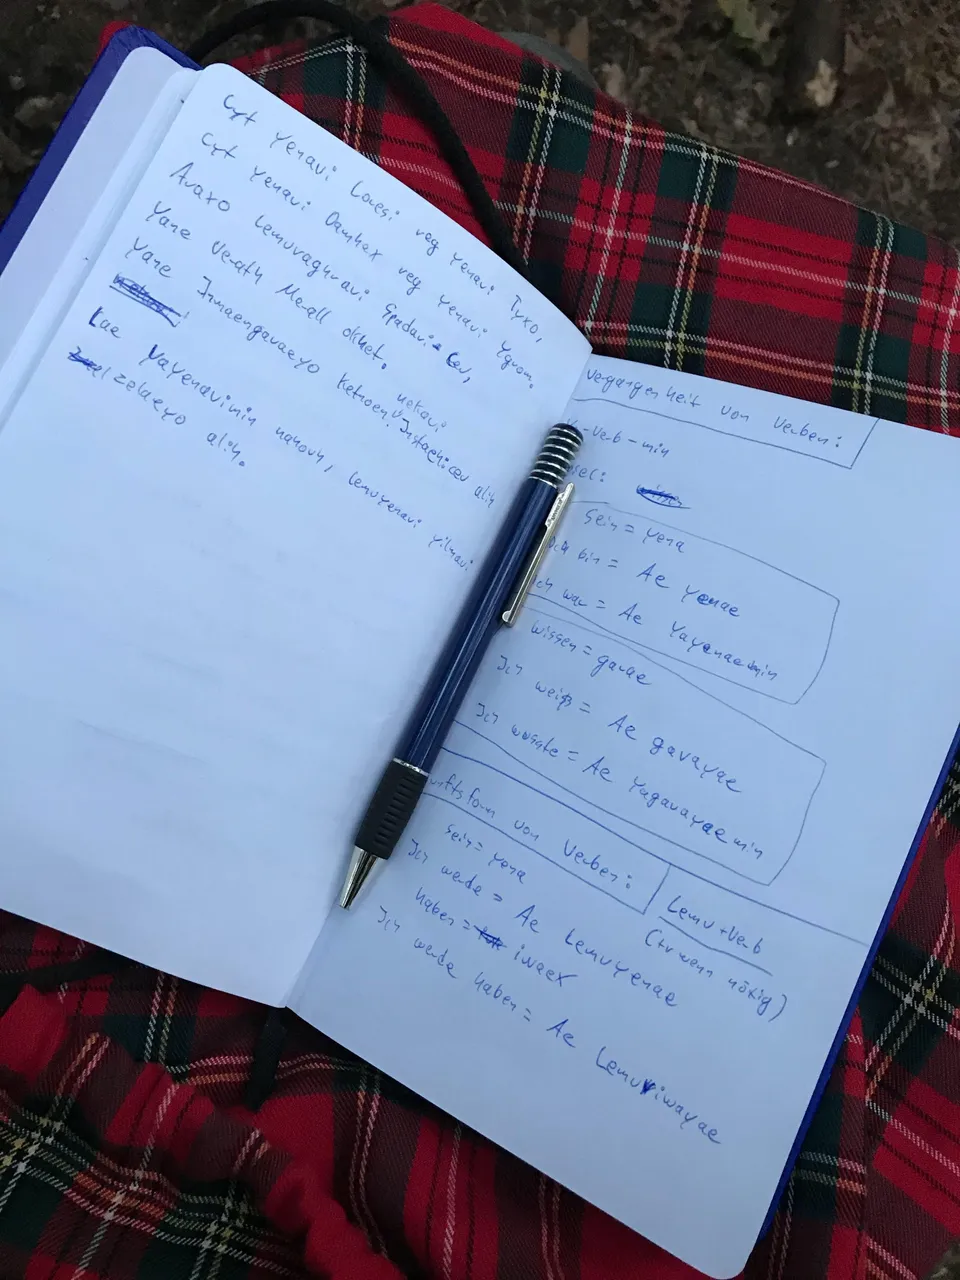 Cyt Yenavi Lovesi veg Yenavi Tyxo,
Cyt Yenavi Damhax veg Yenavi Ygnom.
Avaxo Lemuvaghnavi Epadavi Cev,
Yane Verath Merall okhet.
Yane Inmaengavaeyo Ketnoen uekavi
Instaehicev alih
Lae Yayenavimin nanovh, lemuyenavi yilmavi
elzelaeyo alih.
Vergangenheit von Verben:
-Verb-min
sein = yena
Ich bin = Ae yenae
Ich war = Ae Yayenaemin
wissen = gavae
Ich weiß = Ae gavayae
Ich wusste = Ae Yagavayaemin
von Verben:
Lemu+Verb
(+v wenn nötig)
sein = yena
Ich werde = Ae Lemuyenae
haben = iwaex
Ich werde haben = Ae Lemuviwayae